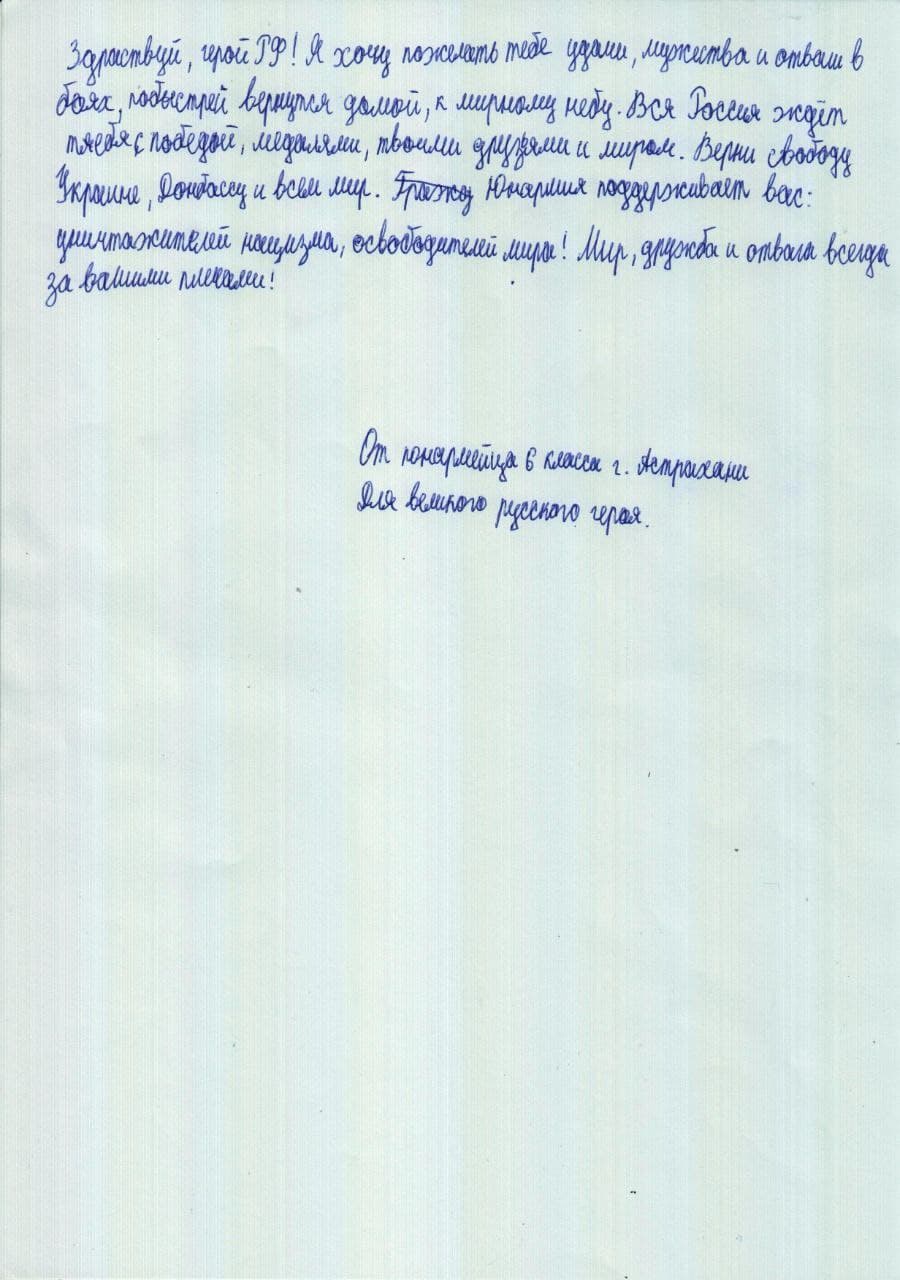 Здраствуй, герой РФ! Я хочу пожелать тебе удачи, мужества и отваги в
боях, побыстрей вернутся домой, к мирному небу. Вся Россия ждёт
тяебя с победой, медалями, твоими друзьями и миром. Верни свободу
Украине, Донбассу и всем мир. Гражо Юнармия поддерживает вас:
уничтажителей нацизма, освободителей мира! Мир, дружба и отвага всегда
за вашими плечами!
От юнармейца 6 класса г. Астрахани
Для великого русского героя.